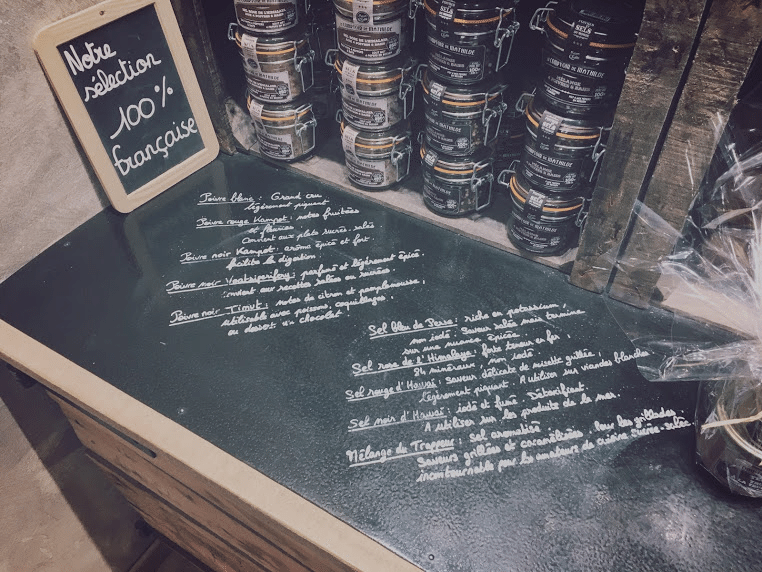 Notre
sélection
100%
française
Poivre blanc : Grand cru
légèrement piquant
Poivre rouge Kampot : notes fruitées
et fleuries
Convient aux plats sucrés-salés
Poivre noir Kampot : arôme épicé et fort.
facilite la digestion.
Poivre noir Voatsiperifery : parfumé et légèrement épicé
convient aux recettes salées ou sucrées.
Poivre noir Timut : notes de citron et pamplemousse,
utilisable avec poissons, coquillages,
ou dessert au chocolat !
Sel bleu de Perse : riche en potassium,
non iodé. Saveur salée mais termine
sur une nuance épicée.
Sel rose de l'Himalaya : forte teneur en fer,
84 minéraux, non iodé.
Sel rouge d'Hawaï : saveur délicate de noisette grillée,
légèrement piquant. A utiliser sur viandes blanches.
Sel noir d'Hawaï : iodé et fumé. Détoxifiant.
A utiliser sur les produits de la mer.
Mélange du Trappeur : sel aromatisé pour les grillades.
Saveurs grillées et caramélisées,
incontournable pour les amateurs de cuisine sucrée-salée.
COMPTOIR DE MATHILDE
SELS